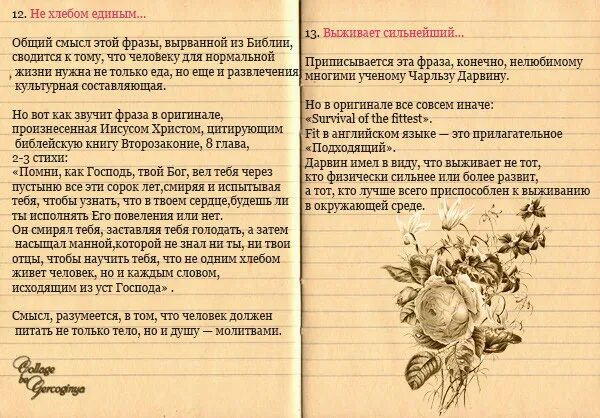 12. Не хлебом единым...
Общий смысл этой фразы, вырванной из Библии,
сводится к тому, что человеку для нормальной
жизни нужна не только еда, но еще и развлечения,
культурная составляющая.
Но вот как звучит фраза в оригинале,
произнесенная Иисусом Христом, цитирующим
библейскую книгу Второзаконие, 8 глава,
2-3 стихи:
«Помни, как Господь, твой Бог, вел тебя через
пустыню все эти сорок лет,смиряя и испытывая
тебя, чтобы узнать, что в твоем сердце,будешь ли
ты исполнять Его повеления или нет.
Он смирял тебя, заставляя тебя голодать, а затем
насыщал манной,которой не знал ни ты, ни твои
отцы, чтобы научить тебя, что не одним хлебом
живет человек, но и каждым словом,
исходящим из уст Господа» .
Смысл, разумеется, в том, что человек должен
питать не только тело, но и душу — молитвами.
Collage
by
Gercoginya
13. Выживает сильнейший...
Приписывается эта фраза, конечно, нелюбимому
многими ученому Чарльзу Дарвину.
Но в оригинале все совсем иначе:
«Survival of the fittest».
Fit в английском языке — это прилагательное
«Подходящий».
Дарвин имел в виду, что выживает не тот,
кто физически сильнее или более развит,
а тот, кто лучше всего приспособлен к выживанию
в окружающей среде.